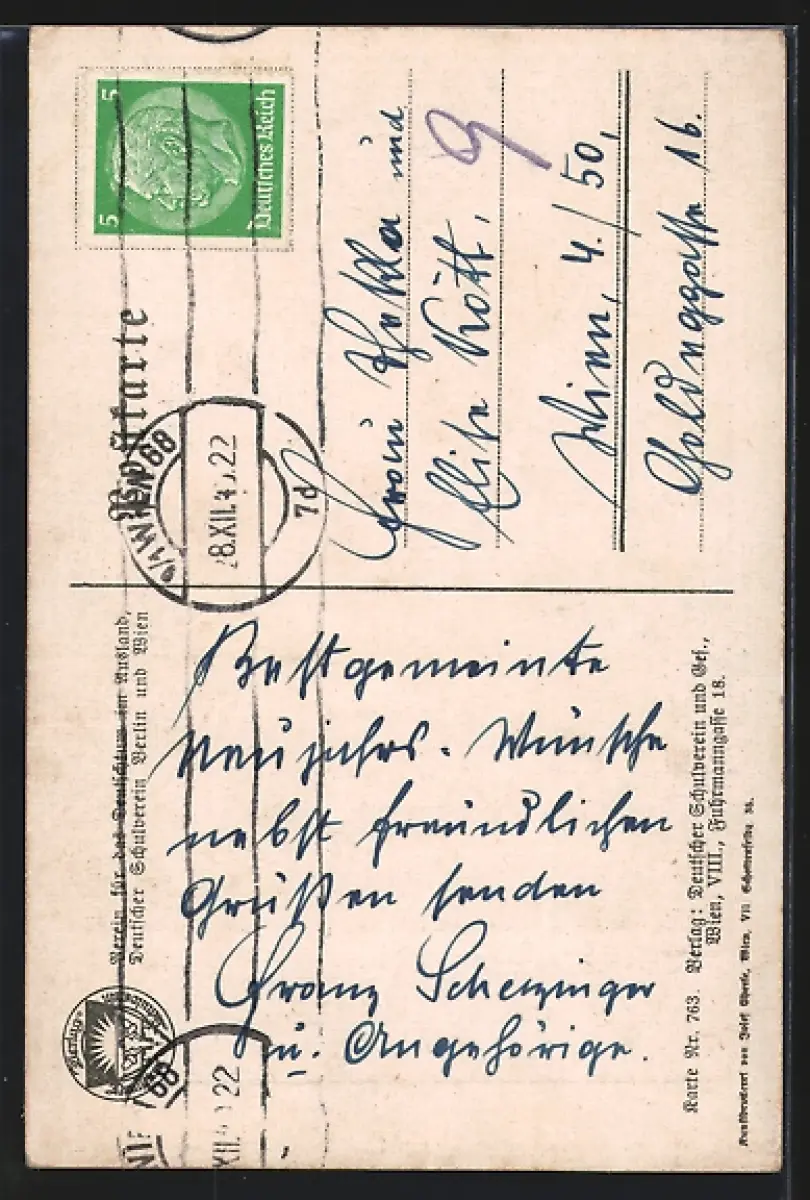 Postkarte
Deutsches Reich
5 5
9/1 WIEN 68
28.XII. 22
7d
Verein für das Deutschtum im Ausland,
Deutscher Schulverein Berlin und Wien
Bestgemeinte
Neujahrs-Wünsche
nebst freundlichen
Grüßen senden
Franz
u. Angehörige.
Frau Thekla und
Elise Kött,
9
Wien, 4./50,
Goldeggasse 16.
Karte Nr. 763. Verlag: Deutscher Schulverein und Ges.,
Wien, VIII., Fuhrmanngasse 18.
Kunstdruckerei von Josef Eberle, Wien, VII
68
XII. 22